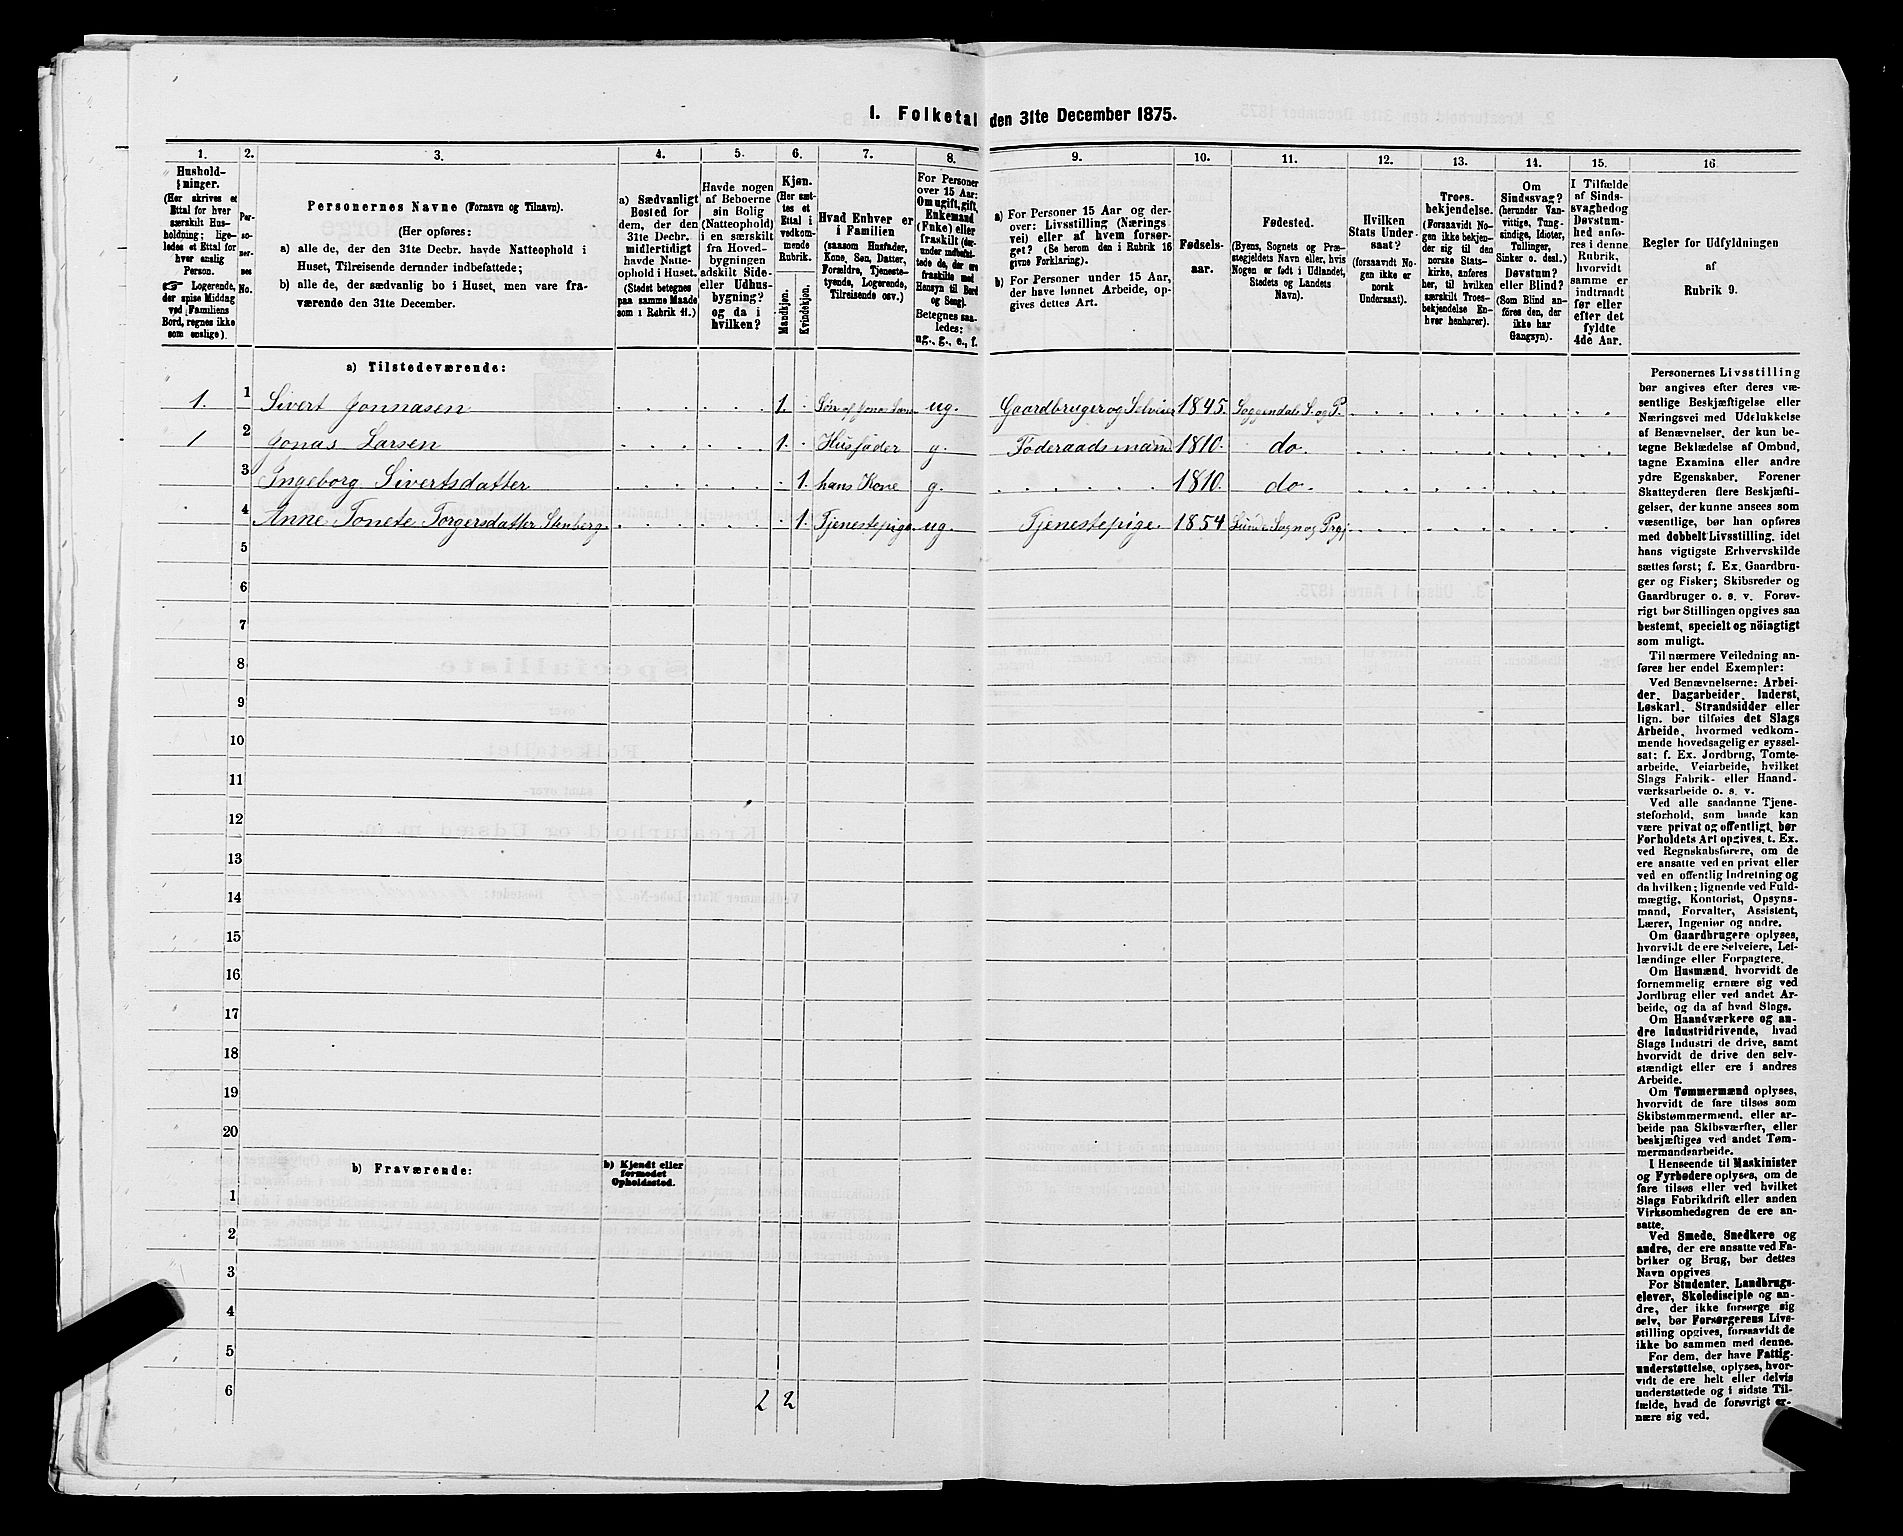 1. Folketal den 31te December 1875.
1. 2. 3. 4. 5. 6. 7. 8. 9. 10. 11. 12. 13. 14. 15. 16
Hushold-
ninger.
(Her skrives et
Ettal for hver
særskilt Hus-
holdning; lige-
ledes et Ettal for
hver enslig
Person.
☞ Logerende,
der spise Middag
ved Familiens
Bord, regnes ikke
som enslige).
Per-
so-
ner-
nes
No.
Personernes Navne (Fornavn og Tilnavn).
(Her opføres:
a) alle de, der den 31te Decbr. havde Natteophold i
Huset, Tilreisende derunder indbefattede;
b) alle de, der sædvanlig bo i Huset, men vare fra-
værende den 31te December.
a) Sædvanligt
Bosted for
dem, der den
31te Decbr.
midlertidigt
havde Natte-
ophold i Huset.
(Stedet betegnes
paa samme Maade
som i Rubrik 11.)
Havde nogen
af Beboerne
sin Bolig
(Natteophold)
i en særskilt
fra Hoved-
bygningen
adskilt Side-
eller Udhus-
bygning?
og da i
hvilken?
Kjøn.
(Her sæt-
tes et
Ettal i
vedkom-
mende
Rubrik.
Mandkjøn.
Kvindekjøn.
Hvad Enhver er
i Familien
(saasom Husfader,
Kone, Søn, Datter,
Forældre, Tjeneste-
tyende, Logerende,
Tilreisende osv.)
For Personer
over 15 Aar:
Om ugift, gift,
Enkemand
(Enke) eller
fraskilt (der-
under indbefat-
tede de, der ere
fraskilte med
Hensyn til Bord
og Seng).
Betegnes saa-
ledes:
ug., g., e., f.
a) For Personer 15 Aar og der-
over: Livsstilling (Nærings-
vei) eller af hvem forsør-
get? (Se herom den i Rubrik 16
givne Forklaring).
b) For Personer under 15 Aar,
der have lønnet Arbeide, op-
gives dettes Art.
Fødsels-
aar.
Fødested.
(Byens, Sognets og Præ-
stegjeldets Navn eller, hvis
Nogen er født i Udlandet,
Stedets og Landets
Navn).
Hvilken
Stats Under-
saat?
(forsaavidt No-
gen ikke er
norsk
Undersaat).
Troes-
bekjendelse.
(Forsaavidt No-
gen ikke bekjen-
der sig til den
norske Stats-
kirke, anføres
her, til hvilken
særskilt Troes-
bekjendelse En-
hver henhører).
Om
Sindssvag?
(herunder Van-
vittige, Tung-
sindige, Idioter,
Tullinger,
Sinker o. desl.)
Døvstum?
eller Blind?
(Som Blind an-
føres den, der
ikke har
Gangsyn).
I Tilfælde
af Sinds-
svaghed og
Døvstum-
hed anfø-
res i denne
Rubrik,
hvorvidt
samme er
indtraadt
før eller
efter det
fyldte
4de Aar.
Regler for Udfyldningen
af
Rubrik 9.
a) Tilstedeværende:
1. 1 Sivert Jonnasen 1. Søn af Jonas Larsen ug. Gaardbruger og Selveier 1845. Soggendals S. og P.
1 2 Jonas Larsen 1. Husfader g. Føderaadsmand 1810. do.
3 Ingeborg Sivertsdatter 1. hans Kone g. 1810. do.
4 Anne Tonete Torgersdatter Stenberg 1. Tjenestepige ug. Tjenestepige 1854 Lunde Sogn og Prgj.
5
6
7
8
9
10
11
12
13
14
15
16
17
18
19
20
b) Fraværende:
b) Kjendt eller
formodet
Opholdssted.
1
2
3
4
5
6
2 2
Personernes Livsstilling
bør angives efter deres væ-
sentlige Beskjæftigelse eller
Næringsvei med Udelukkelse
af Benævnelser, der kun be-
tegne Beklædelse af Ombud,
tagne Examina eller andre
ydre Egenskaber. Forener
Skatteyderen flere Beskjæfti-
gelser, der kunne ansees som
væsentlige, bør han opføres
med dobbelt Livsstilling, idet
hans vigtigste Erhvervskilde
sættes først; f. Ex. Gaardbru-
ger og Fisker; Skibsreder og
Gaardbruger o. s. v. Forøv-
rigt bør Stillingen opgives saa
bestemt, specielt og nöiagtigt
som muligt.
Til nærmere Veiledning an-
føres her endel Exempler:
Ved Benævnelserne: Arbei-
der, Dagarbeider, Inderst,
Løskarl, Strandsidder eller
lign. bør tilføies det Slags
Arbeide, hvormed vedkom-
mende hovedsagelig er syssel-
sat; f. Ex. Jordbrug, Tomte-
arbeide, Veiarbeide, hvilket
Slags Fabrik- eller Haand-
værksarbeide o. s. v.
Ved alle saadanne Tjene-
steforhold, som baade kan
være privat og offentligt, bør
Forholdets Art opgives, t. Ex.
ved Regnskabsførere, om de
ere ansatte ved en privat eller
ved en offentlig Indretning og
da hvilken; lignende ved Fuld-
mægtig, Kontorist, Opsyns-
mand, Forvalter, Assistent,
Lærer, Ingeniør og andre.
Om Gaardbrugere oplyses,
hvorvidt de ere Selveiere, Lei-
lændinge eller Forpagtere.
Om Husmænd, hvorvidt de
fornemmelig ernære sig ved
Jordbrug eller ved andet Ar-
beide, og da af hvad Slags.
Om Haandværkere og an-
dre Industridrivende, hvad
Slags Industri de drive, samt
hvorvidt de drive den selv-
stændigt eller ere i andres
Arbeide.
Om Tømmermænd oplyses,
hvorvidt de fare tilsøs som
Skibstømmermænd, eller ar-
beide paa Skibsværfter, eller
beskjæftiges ved andet Tøm-
mermandsarbeide.
I Henseende til Maskinister
og Fyrbødere oplyses, om de
fare tilsøs eller ved hvilket
Slags Fabrikdrift eller anden
Virksomhedsgren de ere an-
satte.
Ved Smede, Snedkere og
andre, der ere ansatte ved Fa-
briker og Brug, bør dettes
Navn opgives
For Studenter, Landbrugs-
elever, Skoledisciple og an-
dre, der ikke forsørge sig
selv, bør Forsørgerens Livs-
stilling opgives, forsaavidt de
ikke bo sammen med denne.
For dem, der have Fattig-
understøttelse, oplyses, hvor-
vidt de ere helt eller delvis
understøttede og i sidste Til-
fælde, hvad de forøvrigt er-
nære sig ved.